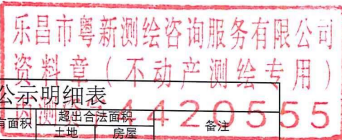 乐昌市粤新测绘咨询服务有限公司
资料章（不动产测绘专用）
公示明细表
4420555
面积 超出合法面积 备注
土地 房屋